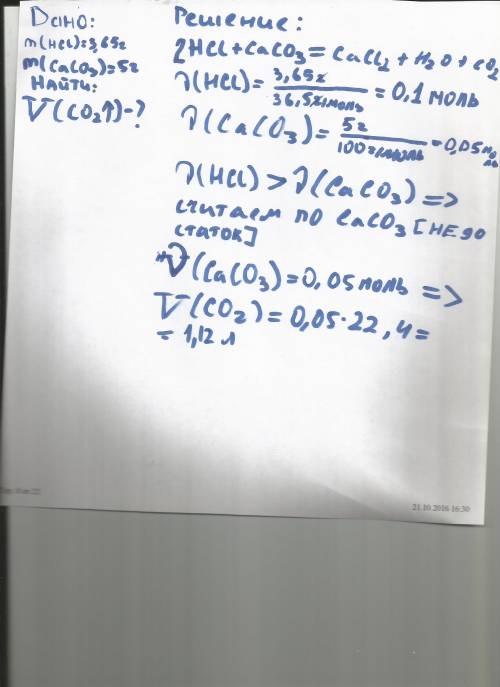 Дано:
m(HCl)=3,65г
m(CaCO₃)=5г
Найти:
V(CO₂↑)-?
Решение:
2HCl+CaCO₃=CaCl₂+H₂O+CO₂
ν(HCl)=3,65г/36,5г/моль=0,1 моль
ν(CaCO₃)=5г/100г/моль=0,05мо
ль
ν(HCl)>ν(CaCO₃)=>
считаем по CaCO₃[недо
статок]
ν(CaCO₃)=0,05моль=>
V(CO₂)=0,05·22,4=
=1,12л
21.10.2016 16:30